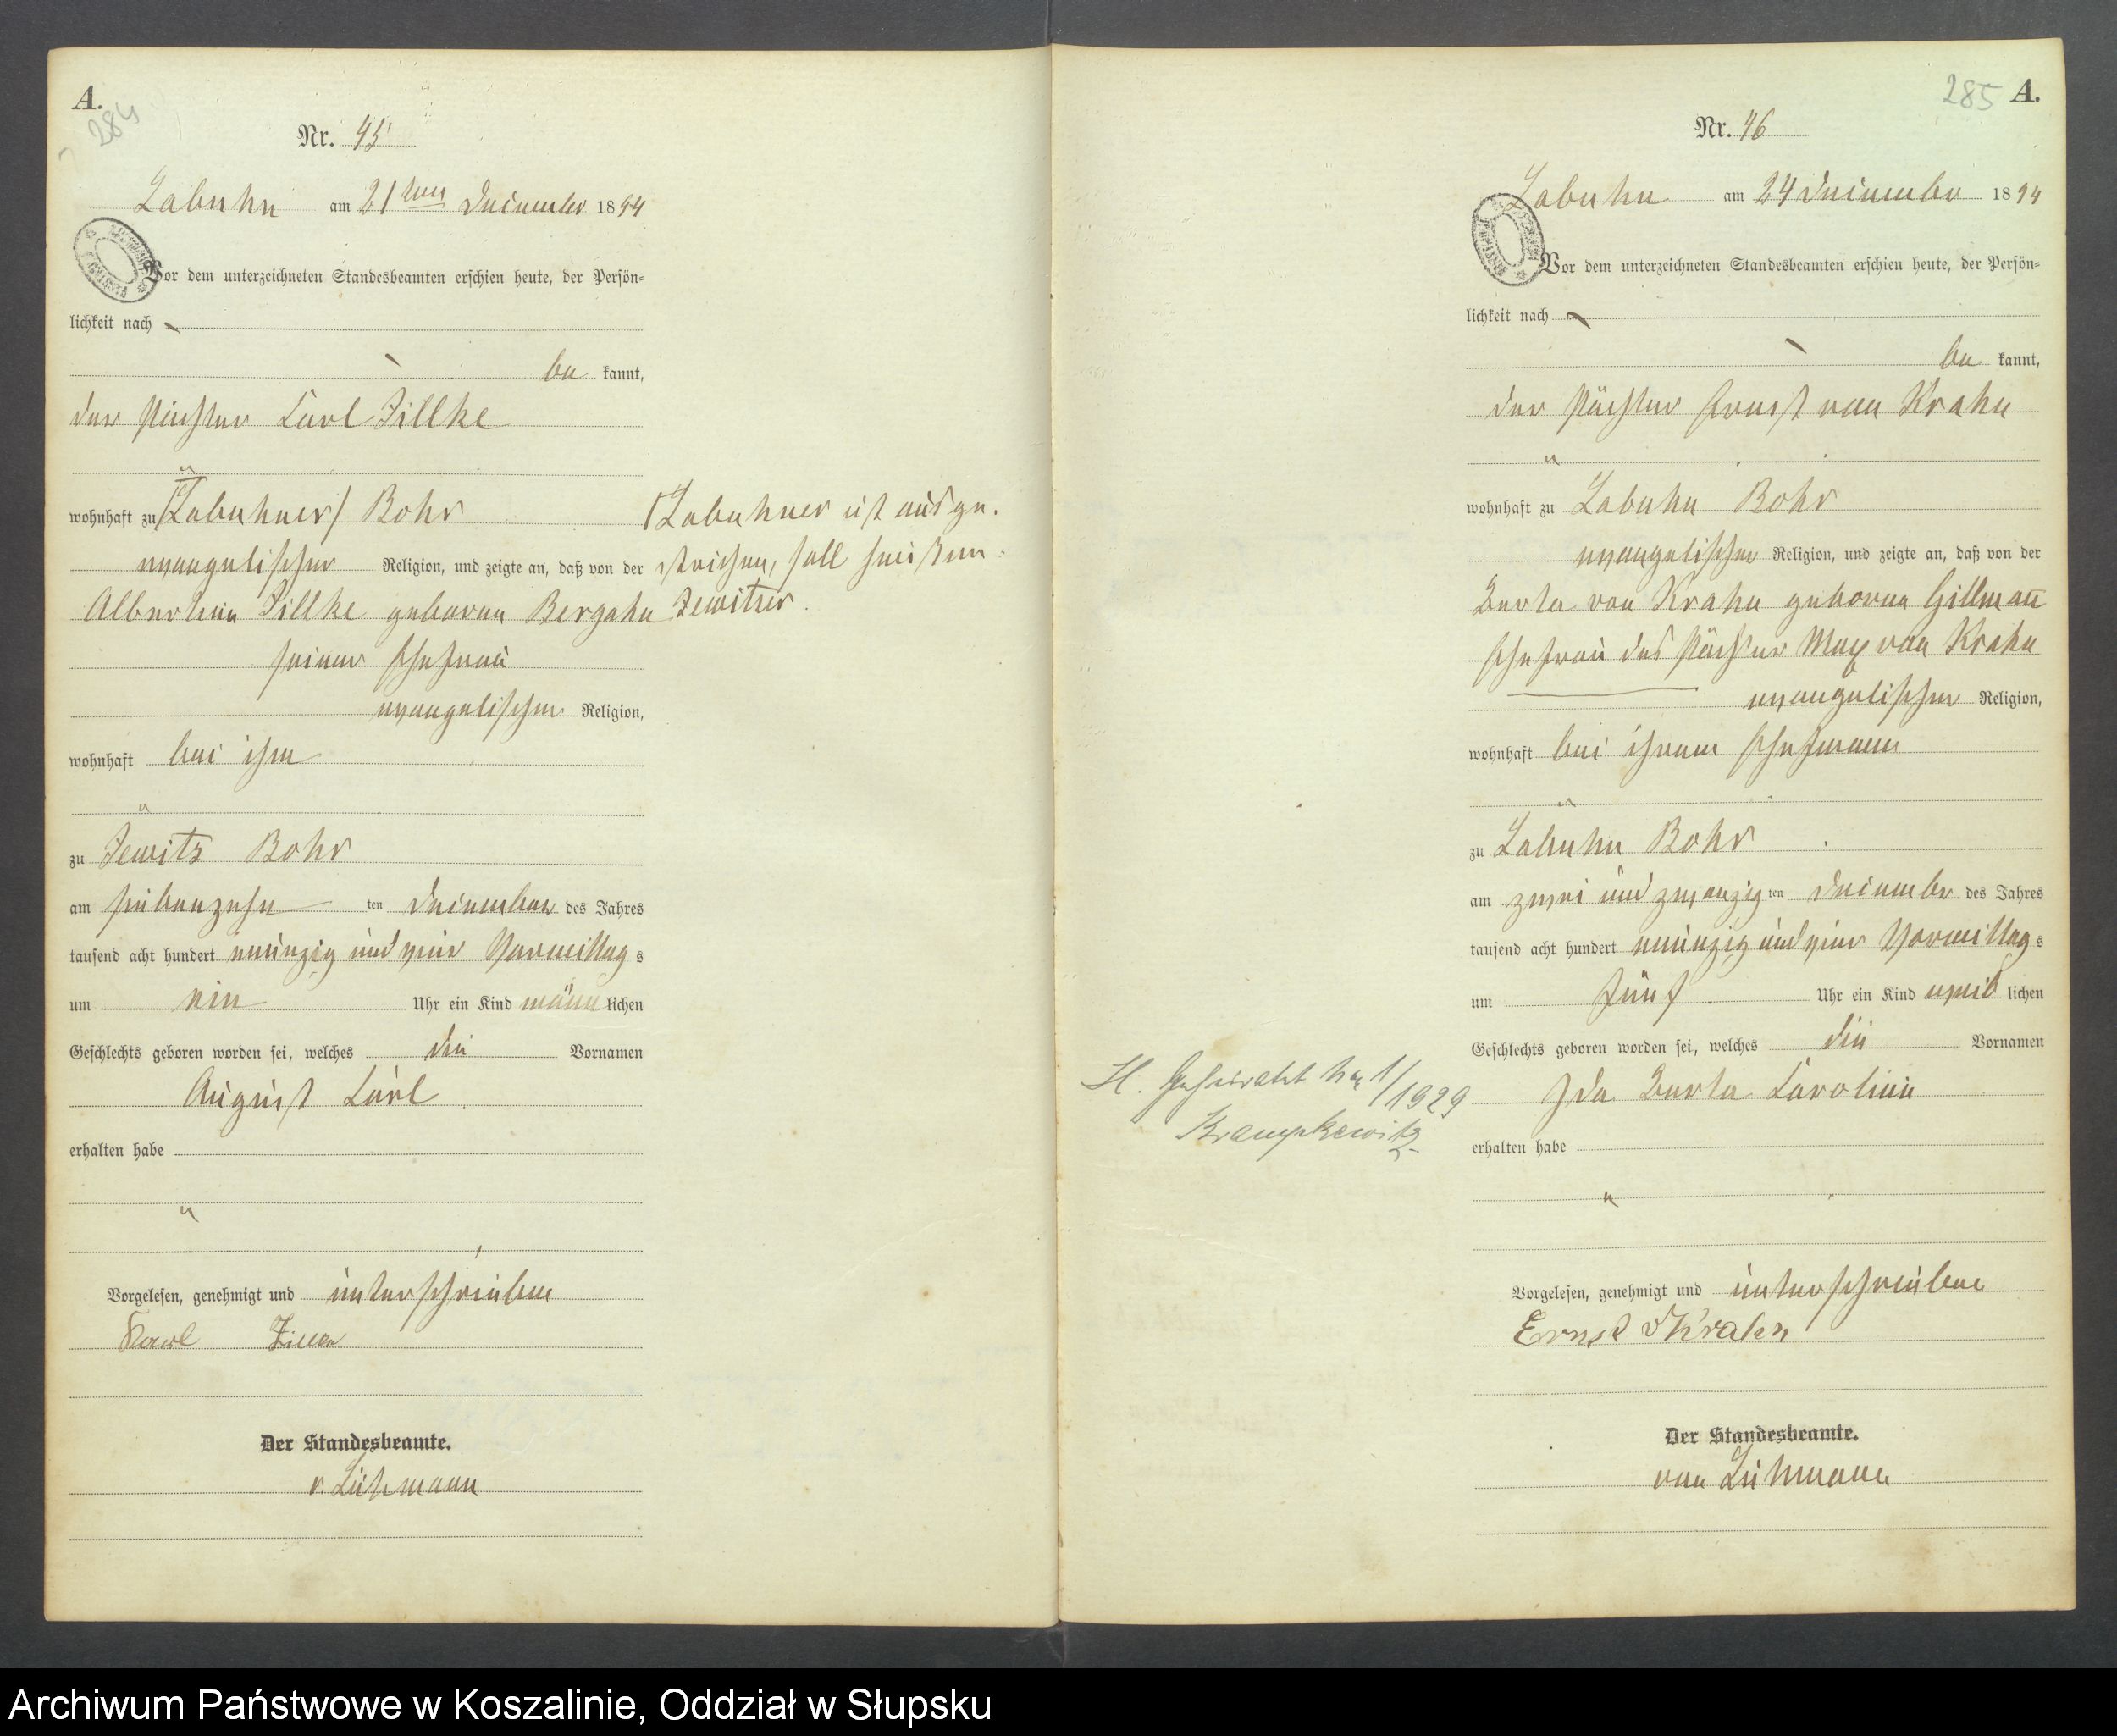 A.
284
Nr. 45
Labuhn am 21ten Dezember 1894
Vor dem unterzeichneten Standesbeamten erschien heute, der Persön=
lichkeit nach
be kannt,
der Pächter Carl Zillke
wohnhaft zu /Labuhner/ Bohr
evangelischer Religion, und zeigte an, daß von der
Albertine Zillke geborene Bergahn
seiner Ehefrau
evangelischer Religion,
wohnhaft bei ihm
zu Zewitz Bohr
am siebenzehn ten Dezember des Jahres
tausend acht hundert neunzig und vier Vormittag s
um ein Uhr ein Kind männ lichen
Geschlechts geboren worden sei, welches die Vornamen
August Carl
erhalten habe
Vorgelesen, genehmigt und unterschrieben
Karl
Der Standesbeamte.
v. Lühmann
/Labuhner ist ausge.
strichen, soll heißen
Zewitzer.
285 A.
Nr. 46
Labuhn am 24 Dezember 1894
Vor dem unterzeichneten Standesbeamten erschien heute, der Persön=
lichkeit nach
be kannt,
der Pächter Ernst von Krahn
wohnhaft zu Labuhn Bohr
evangelischer Religion, und zeigte an, daß von der
Berta von Krahn geborene Gillmañ
Ehefrau des Pächter Max von Krahn
evangelischer Religion,
wohnhaft bei ihrem Ehemann
zu Labuhn Bohr
am zwei und zwanzig ten Dezember des Jahres
tausend acht hundert neunzig und vier Vormittag s
um fünf Uhr ein Kind weib lichen
Geschlechts geboren worden sei, welches die Vornamen
Ida Berta Caroline
erhalten habe
Vorgelesen, genehmigt und unterschrieben
Ernst v Krahn
Der Standesbeamte.
von Lühmann
H. Geheiratet 1/1929
Krampkewitz
Archiwum Państwowe w Koszalinie, Oddział w Słupsku